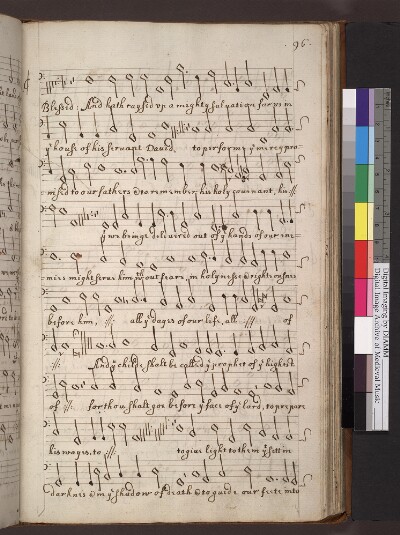 96.
Blessed: And hath raysed vp a mighty saluation for vs in
yͤ house of his seruant Dauid. to performe yͤ mercy pro
mised to our fathers & to remember his holy couenant, his :||:
yͭ we beinge deliuered out of yͤ hands of our ene=
mies might serue him wͭʰout feare, in holynesse & righteousnes
before him, :||: all yͤ dayes of our life, all :||: of
:||: And yͧ childe shalt be called yͤ prophet of yͤ highest
of :||: for thou shalt goe before yͤ face of yͤ lord, to prepare
his wayes, to :||: to giue light to them yͭ sitt in
darknes & in yͤ shadow of death & to guide our feete into
Digital Imaging by DIAMM
Digital Image Archive of Medieval Music